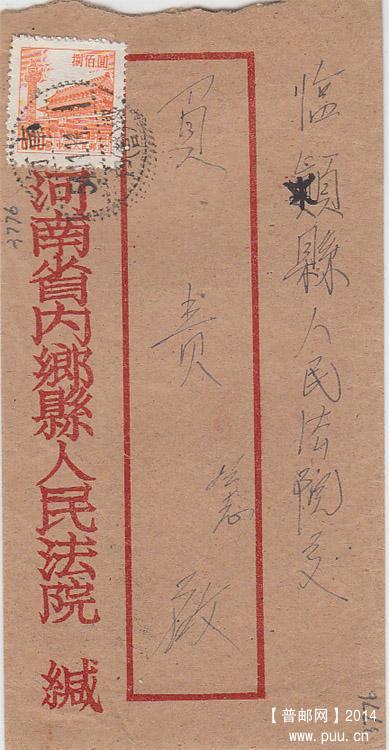 捌佰圓
临颖縣人民法院交
同志 啟
河南省内鄉縣人民法院 緘
3776
3776
【普邮网】2014
www.puu.cn